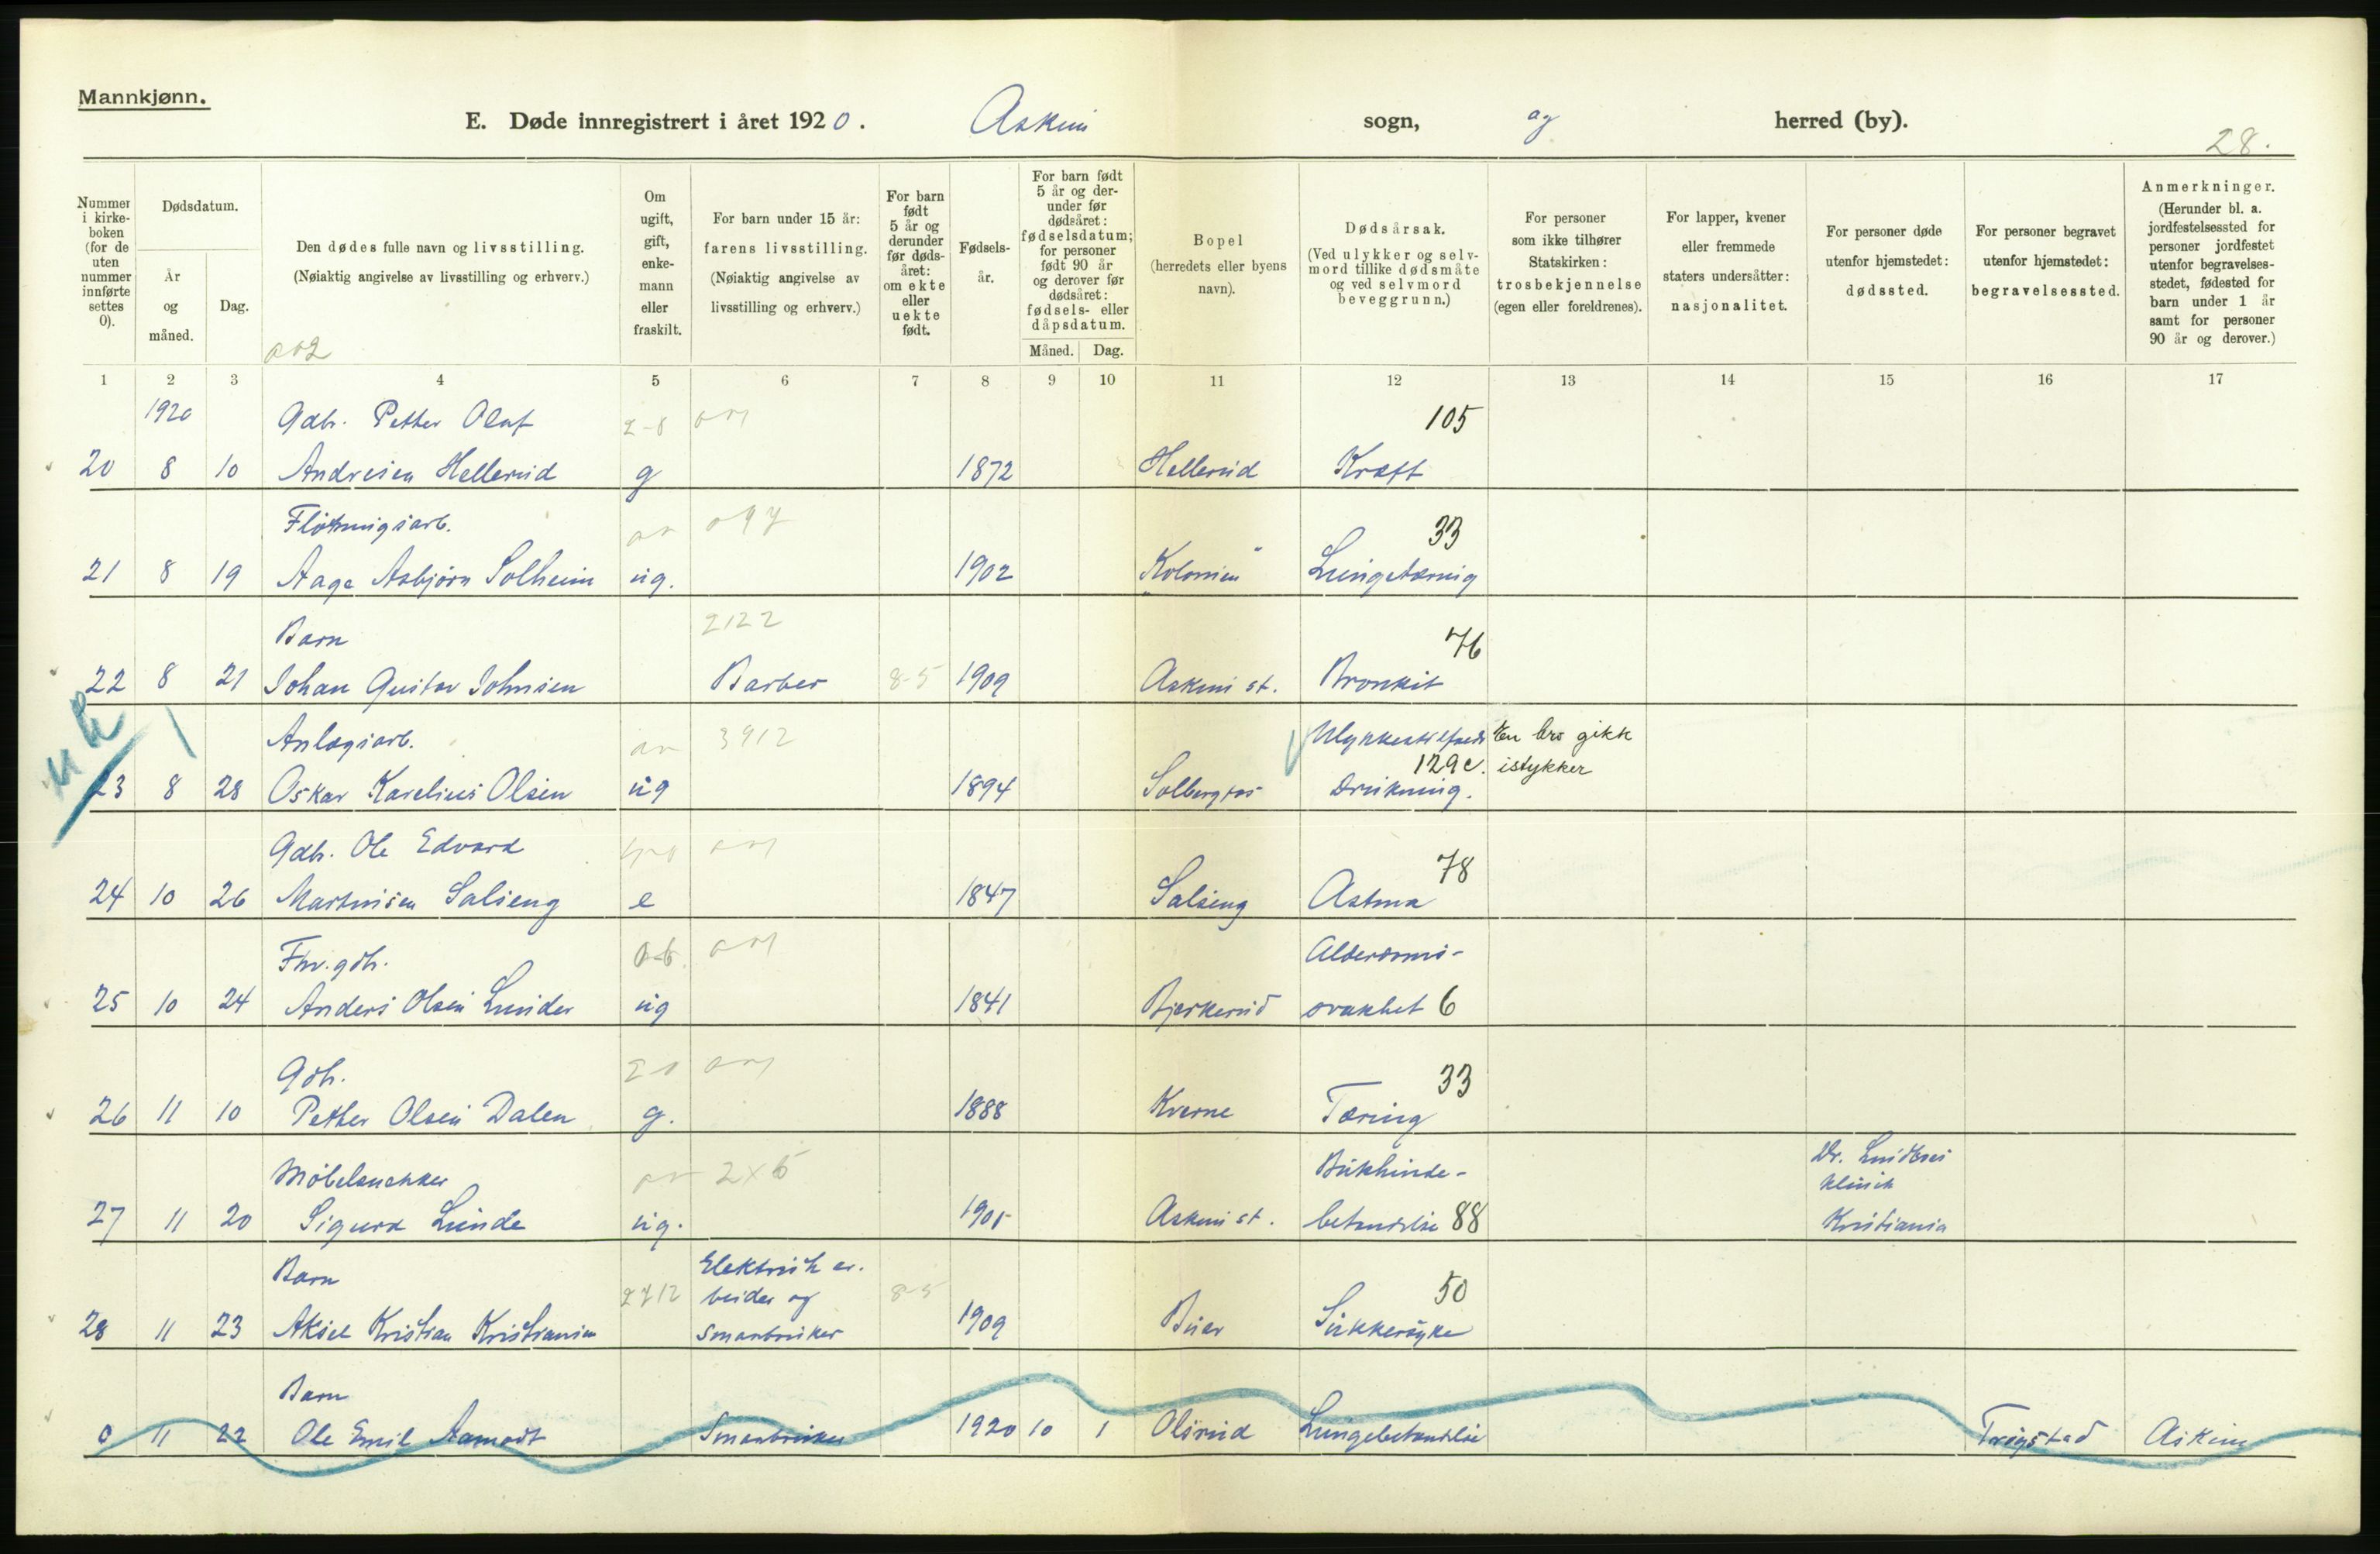 Mannkjønn.
E. Døde innregistrert i året 1920. Askim sogn, og herred (by).
28.
Nummer i kirkeboken (for de uten nummer innførte settes 0).
Dødsdatum.
År og måned.
Dag.
Den dødes fulle navn og livsstilling.
(Nøiaktig angivelse av livsstilling og erhverv.)
002
Om ugift, gift, enkemann eller fraskilt.
For barn under 15 år: farens livsstilling.
(Nøiaktig angivelse av livsstilling og erhverv.)
For barn født 5 år og derunder før dødsåret: om ekte eller uekte født.
Fødselsår.
For barn født 5 år og derunder før dødsåret: fødselsdatum; for personer født 90 år og derover før dødsåret: fødsels- eller dåpsdatum.
Måned. Dag.
Bopel (herredets eller byens navn).
Dødsårsak.
(Ved ulykker og selvmord tillike dødsmåte og ved selvmord beveggrunn.)
For personer som ikke tilhører Statskirken: trosbekjennelse (egen eller foreldrenes).
For lapper, kvener eller fremmede staters undersåtter: nasjonalitet.
For personer døde utenfor hjemstedet: dødssted.
For personer begravet utenfor hjemstedet: begravelsessted.
Anmerkninger.
(Herunder bl. a. jordfestelsessted for personer jordfestet utenfor begravelsesstedet, fødested for barn under 1 år samt for personer 90 år og derover.)
1 2 3 4 5 6 7 8 9 10 11 12 13 14 15 16 17
1920 Gdbr. Petter Olaf 2-8 001 105
20 8 10 Andresen Hellerud g 1872 Hellerud Kræft
Fløtningsarb. 33
21 8 19 Aage Asbjørn Solheim ug. 1902 "Kolonien" Lungetæring
Barn 2122 76
22 8 21 Johan Gustav Johnsen Barber 8-5 1909 Askim st. Bronkit
Anlægsarb. 3912 Ulykkestilfælde En bro gikk
23 8 28 Oskar Karelius Olsen ug 1894 Solbergfos 129c. Drukning. istykker
Gdb. Ole Edvard 001 78
24 10 26 Martinsen Salseng e 1847 Salseng Astma
Fhv. gdb. 0-6 001 Alderdoms-
25 10 24 Anders Olsen Lunder ug 1841 Bjerkerud svakhet 6
Gdb. 001 33
26 11 10 Petter Olsen Dalen g. 1888 Kverne Tæring
Møbelsnekker 2x6 Bukhinde- Dr. Lundbes klinik
27 11 20 Sigurd Lunde ug. 1901 Askim st. betendelse 88 Kristiania
Barn 2712 Elektrisk ar-
beider og 8-5 50
28 11 23 Aksel Kristian Kristiansen Smaabruker 1909 Buer Sukkersyke
Barn
0 11 22 Ole Emil Aamodt Smaabruker 1920 10 1 Olsrud Lungebetendelse Trøgstad Askim